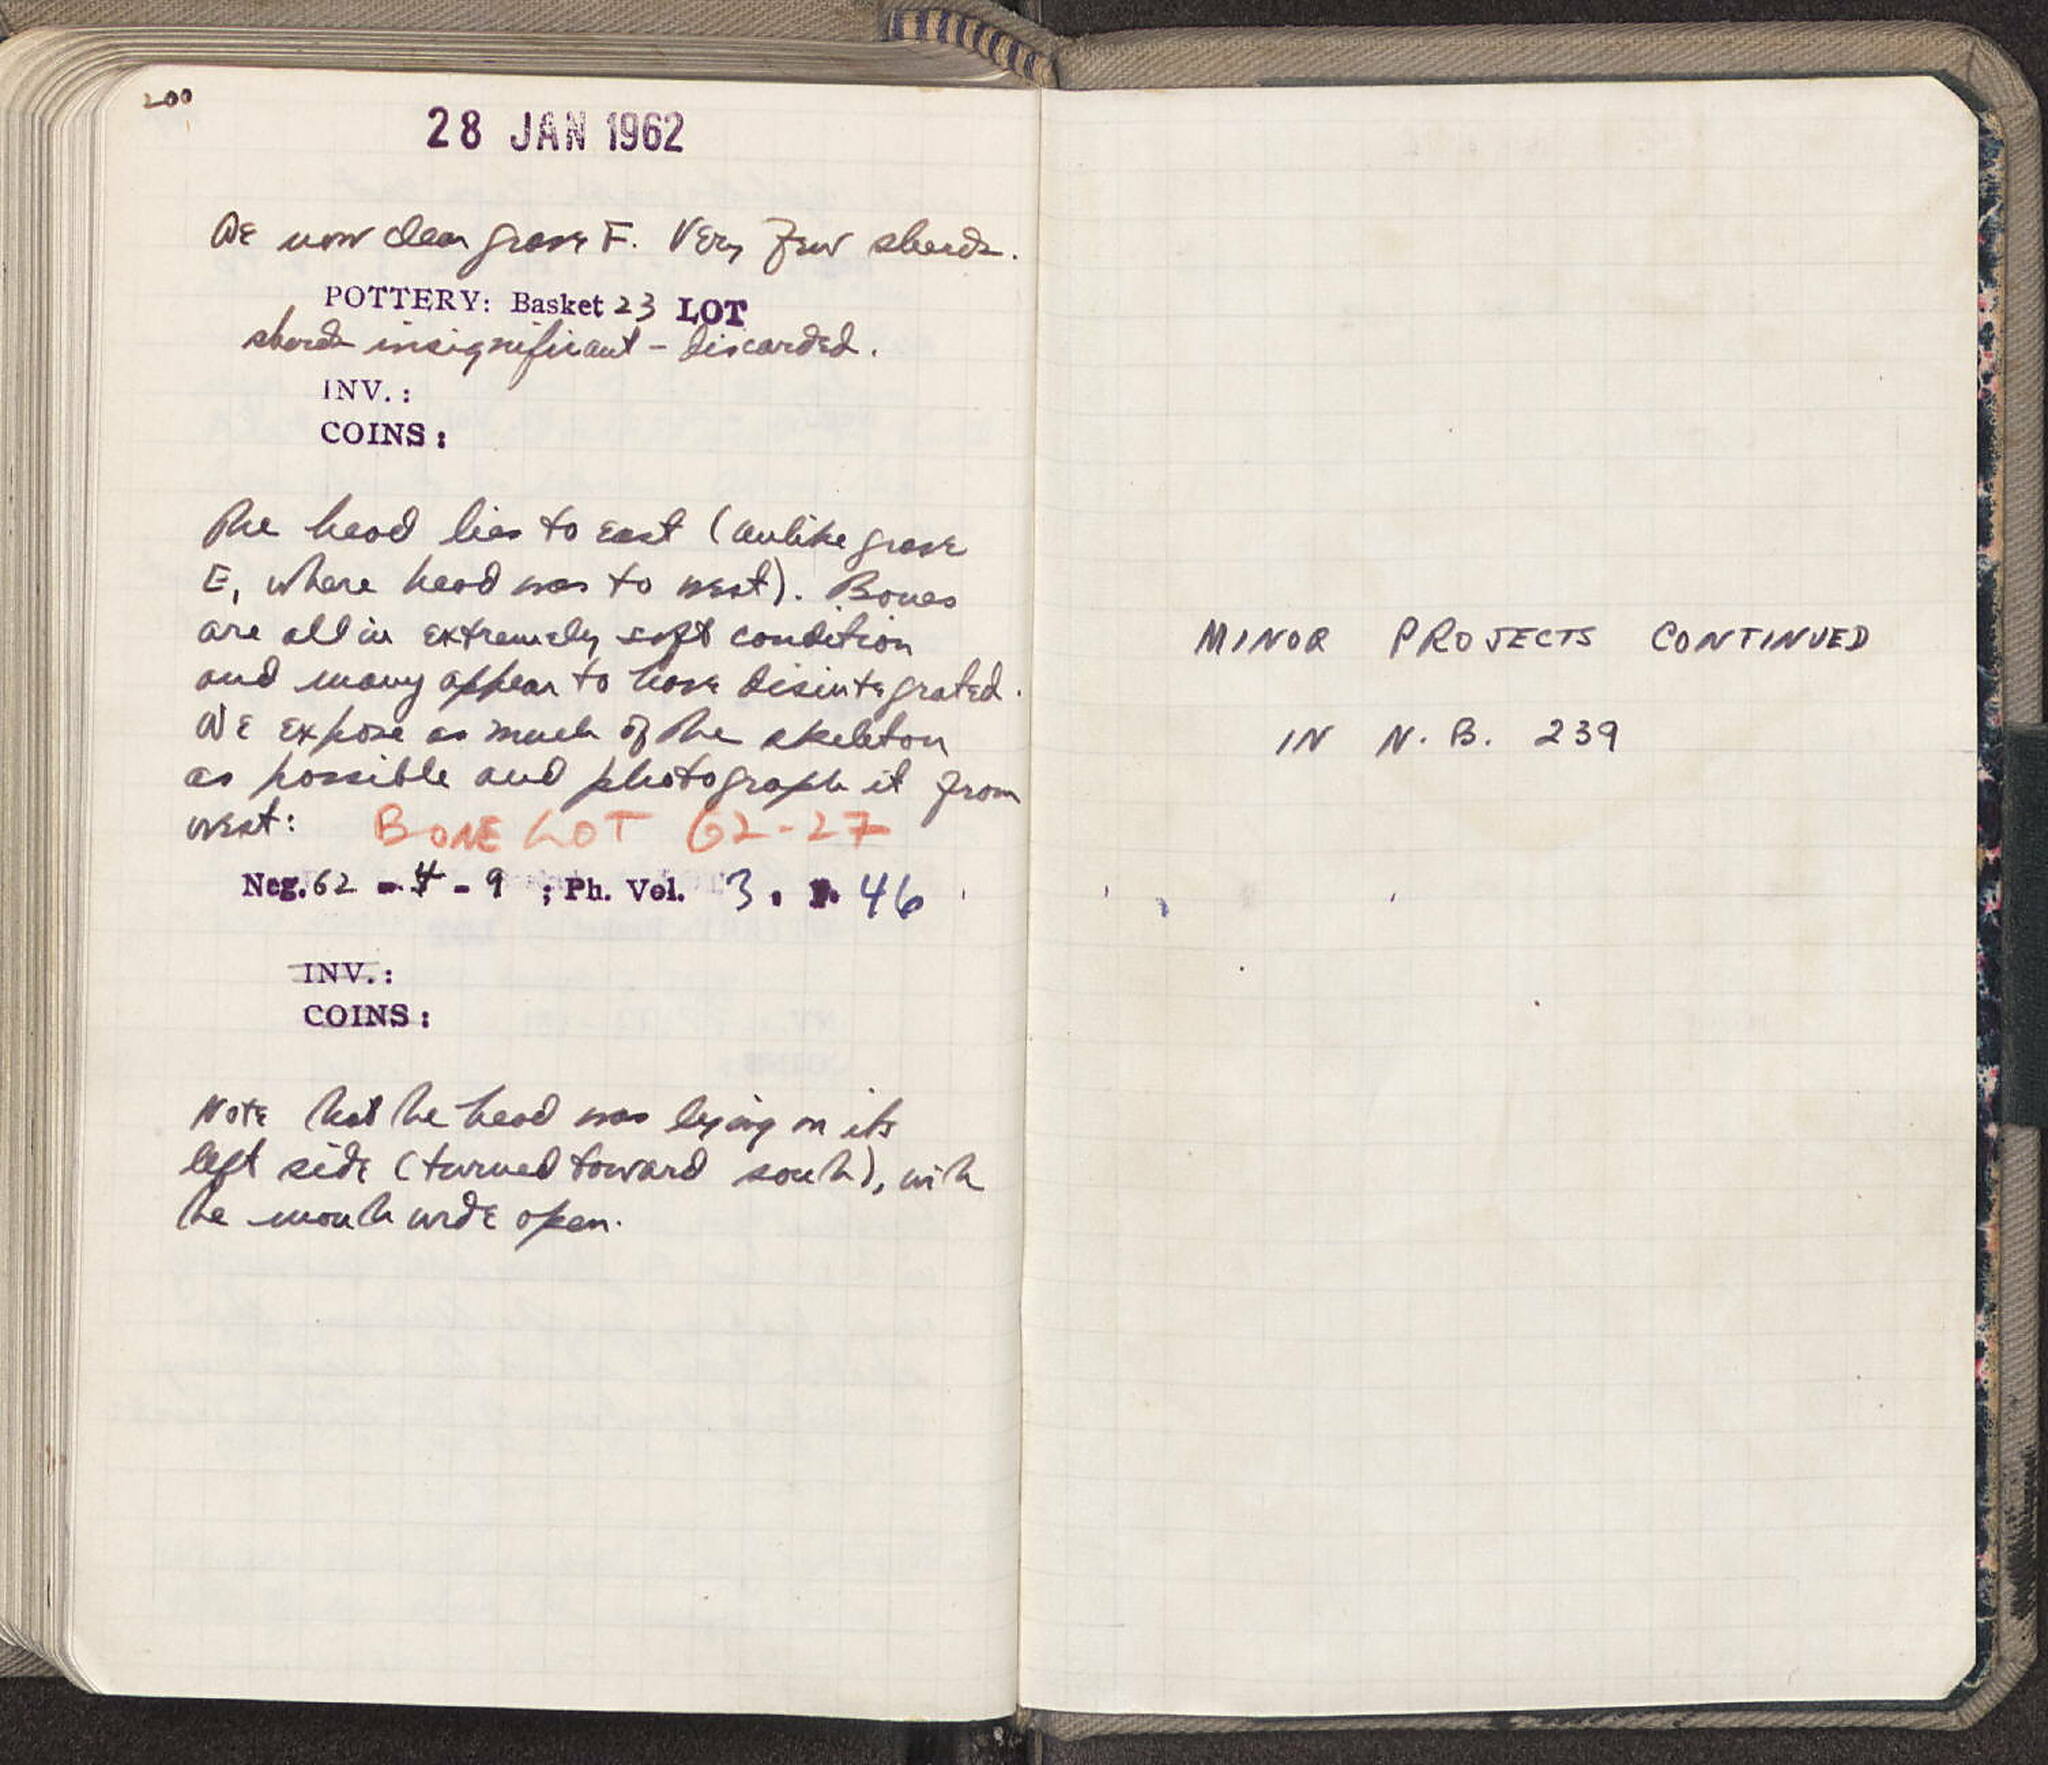 200
28 JAN 1962
We now clean grave F. Very few sherds.
POTTERY: Basket 23 LOT
sherds insignificant - discarded.
INV.:
COINS:
The head lies to east (unlike grave
E, where head was to west). Bones
are all in extremely soft condition
and many appear to have disintegrated.
We expose as much of the skeleton
as possible and photograph it from
west: BONE LOT 62-27
Neg. 62 - 4 - 9 ; Ph. Vol. 3, p. 46
INV.:
COINS:
Note that the head was lying on its
left side (turned toward south), with
the mouth wide open.
MINOR PROJECTS CONTINUED
IN N.B. 239